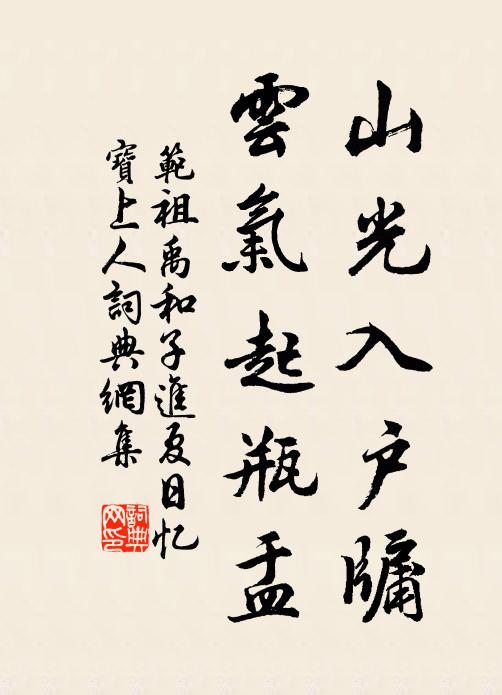 山光入户牖
雲氣起瓶盂
範祖禹和子進夏日忆
寶上人詞典網集
詞典
网印